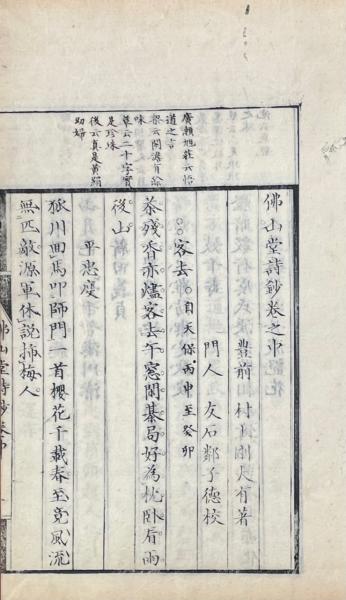 廣瀨旭莊云悟
道之言
梨云閑澹有餘
味
草云二十字實
是珍珠
後云真是黃絹
幼婦
佛山堂詩鈔卷之中
豊前 村上剛大有著
門人 友石鄰子德校
客去 自天保丙申至癸卯
茶殘香亦燼客去午窓閑棊局好為枕卧看雨
後山
平忠度
狐川囬馬叩師門一首櫻花千載春至竟風流
無匹敵源軍休說揷梅人
佛山堂詩鈔卷中